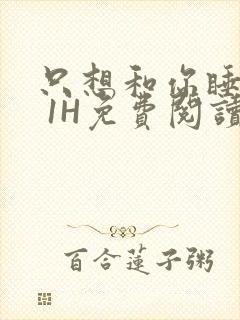 只想和你睡
1H免費閱讀
百合蓮子粥